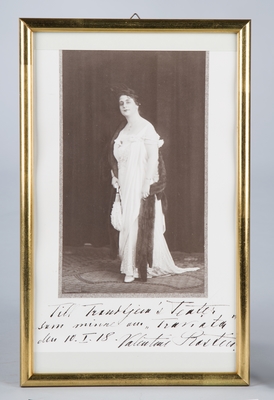 Til Trondhjem's Teater,
som minne om "Traviata"
den 10.I.18. Valentine